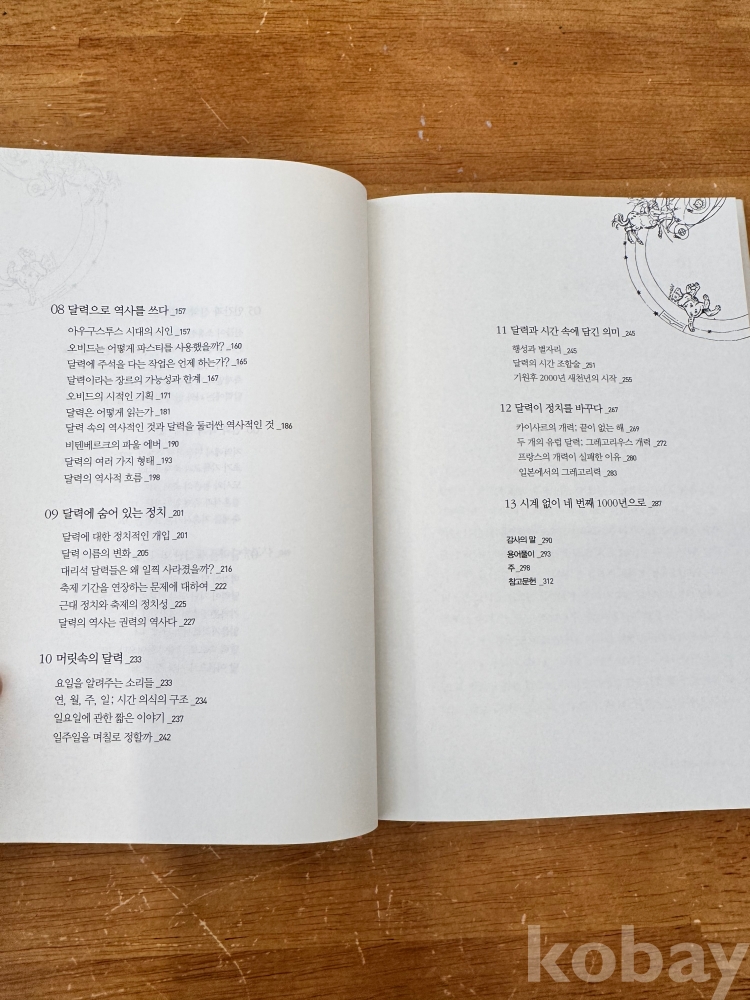 08 달력으로 역사를 쓰다 _157
아우구스투스 시대의 시인 _157
오비드는 어떻게 파스티를 사용했을까? _160
달력에 주석을 다는 작업은 언제 하는가? _165
달력이라는 장르의 가능성과 한계 _167
오비드의 시적인 기획 _171
달력은 어떻게 읽는가 _181
달력 속의 역사적인 것과 달력을 둘러싼 역사적인 것 _186
비텐베르크의 파울 에버 _190
달력의 여러 가지 형태 _193
달력의 역사적 흐름 _198
09 달력에 숨어 있는 정치 _201
달력에 대한 정치적인 개입 _201
달력 이름의 변화 _205
대리석 달력들은 왜 일찍 사라졌을까? _216
축제 기간을 연장하는 문제에 대하여 _222
근대 정치와 축제의 정치성 _225
달력의 역사는 권력의 역사다 _227
10 머릿속의 달력 _233
요일을 알려주는 소리들 _233
연, 월, 주, 일; 시간 의식의 구조 _234
일요일에 관한 짧은 이야기 _237
일주일을 며칠로 정할까 _242
11 달력과 시간 속에 담긴 의미 _245
행성과 별자리 _245
달력의 시간 조합술 _251
기원후 2000년 새천년의 시작 _255
12 달력이 정치를 바꾸다 _267
카이사르의 개력; 끝이 없는 해 _269
두 개의 유럽 달력; 그레고리우스 개력 _272
프랑스의 개력이 실패한 이유 _280
일본에서의 그레고리력 _283
13 시계 없이 네 번째 1000년으로 _287
감사의 말 _290
용어풀이 _293
주 _298
참고문헌 _312
kobay